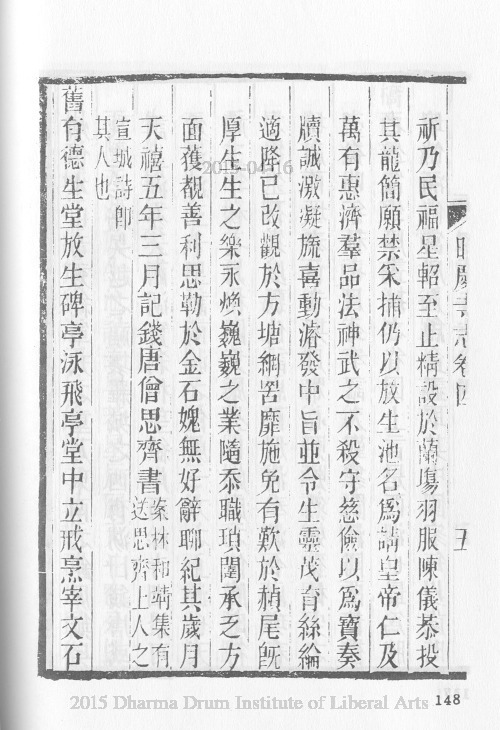 昭慶寺志卷四 五
祈乃民福星軺至止精設於蘭場羽服陳儀恭投
其龍簡願禁采捕仍以放生池名爲請皇帝仁及
萬有惠濟羣品法神武之不殺守慈儉以爲寶奏
牘誠激凝旒喜動濬發中旨並令生靈茂育絲綸
適降已改觀於方塘網罟靡施免有歎於赬尾旣
厚生生之樂永煥巍巍之業隨忝職瑣闈承乏方
面獲覩善利思勒於金石媿無好辭聊紀其歲月
天禧五年三月記錢唐僧思齊書案林和靖集有
送思齊上人之
宣城詩卽
其人也
舊有德生堂放生碑亭泳飛亭堂中立戒烹宰文石
2015-04-16
2015 Dharma Drum Institute of Liberal Arts 148